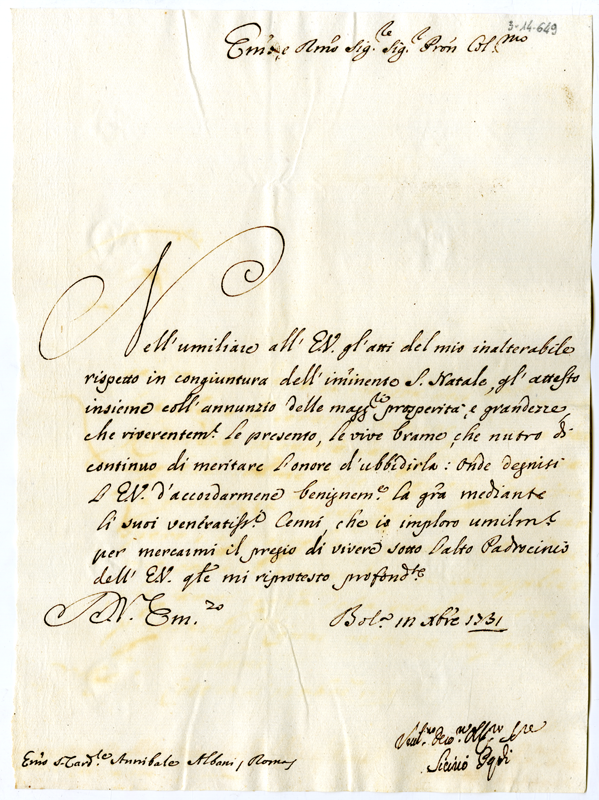 3-14-649
Em̃o e Rm̃o Sig.re Sig.r Prõn Col.mo
Nell'umiliare all' E.V. gl'atti del mio inalterabile
rispetto in congiuntura dell'im̃inente S. Natale, gl'attesto
insieme coll'annunzio delle magg.ri prosperità, e grandezze,
che riverentem.e Le presento, le vive brame, che nutro di
continuo di meritare l'onore d'ubbidirla: Onde degnisi
L'E.V. d'accordarmene benignem.e la gr̃a mediante
li suoi veneratiss.i Cenni, che io imploro umilm.e
per mercarmi il pregio di vivere sotto l'alto Padrocinio
dell' E.V. q̃le mi riprotesto profond.te
D. V. Em.za
Bol.a in Xbre 1731
Em̃o S. Card.le Annibale Albani, Roma,